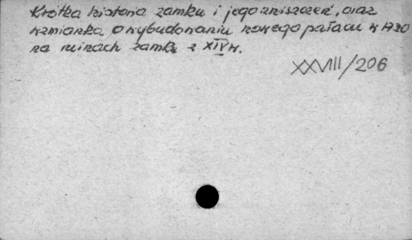 Krótka historia zamku i jego zniszczeń, oraz
wzmianka o wybudowaniu nowego pałacu w 1730
na ruinach zamku z XIV w.
XXVIII/206